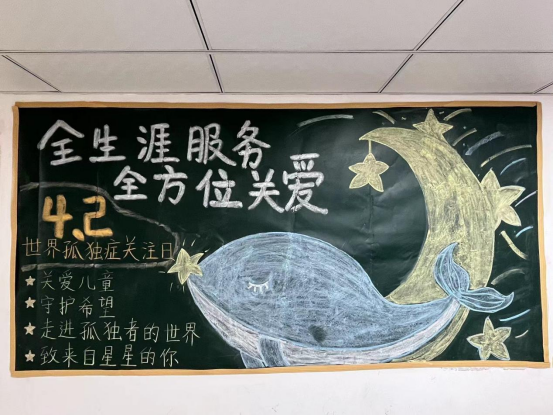 全生涯服务
全方位关爱
4.2
世界孤独症关注日
关爱儿童
守护希望
走进孤独者的世界
致来自星星的你